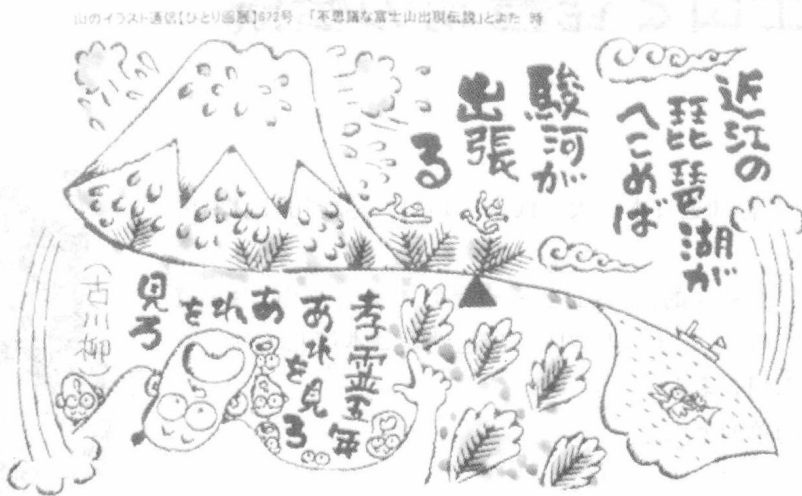 山のイラスト通信【ひとり画展】672号 「不思議な富士山出現伝説」とよた 時
近江の
琵琶湖が
へこめば
駿河が
出張
る
孝霊五年
あれを見ろ
あれを
見ろ
(古川柳)